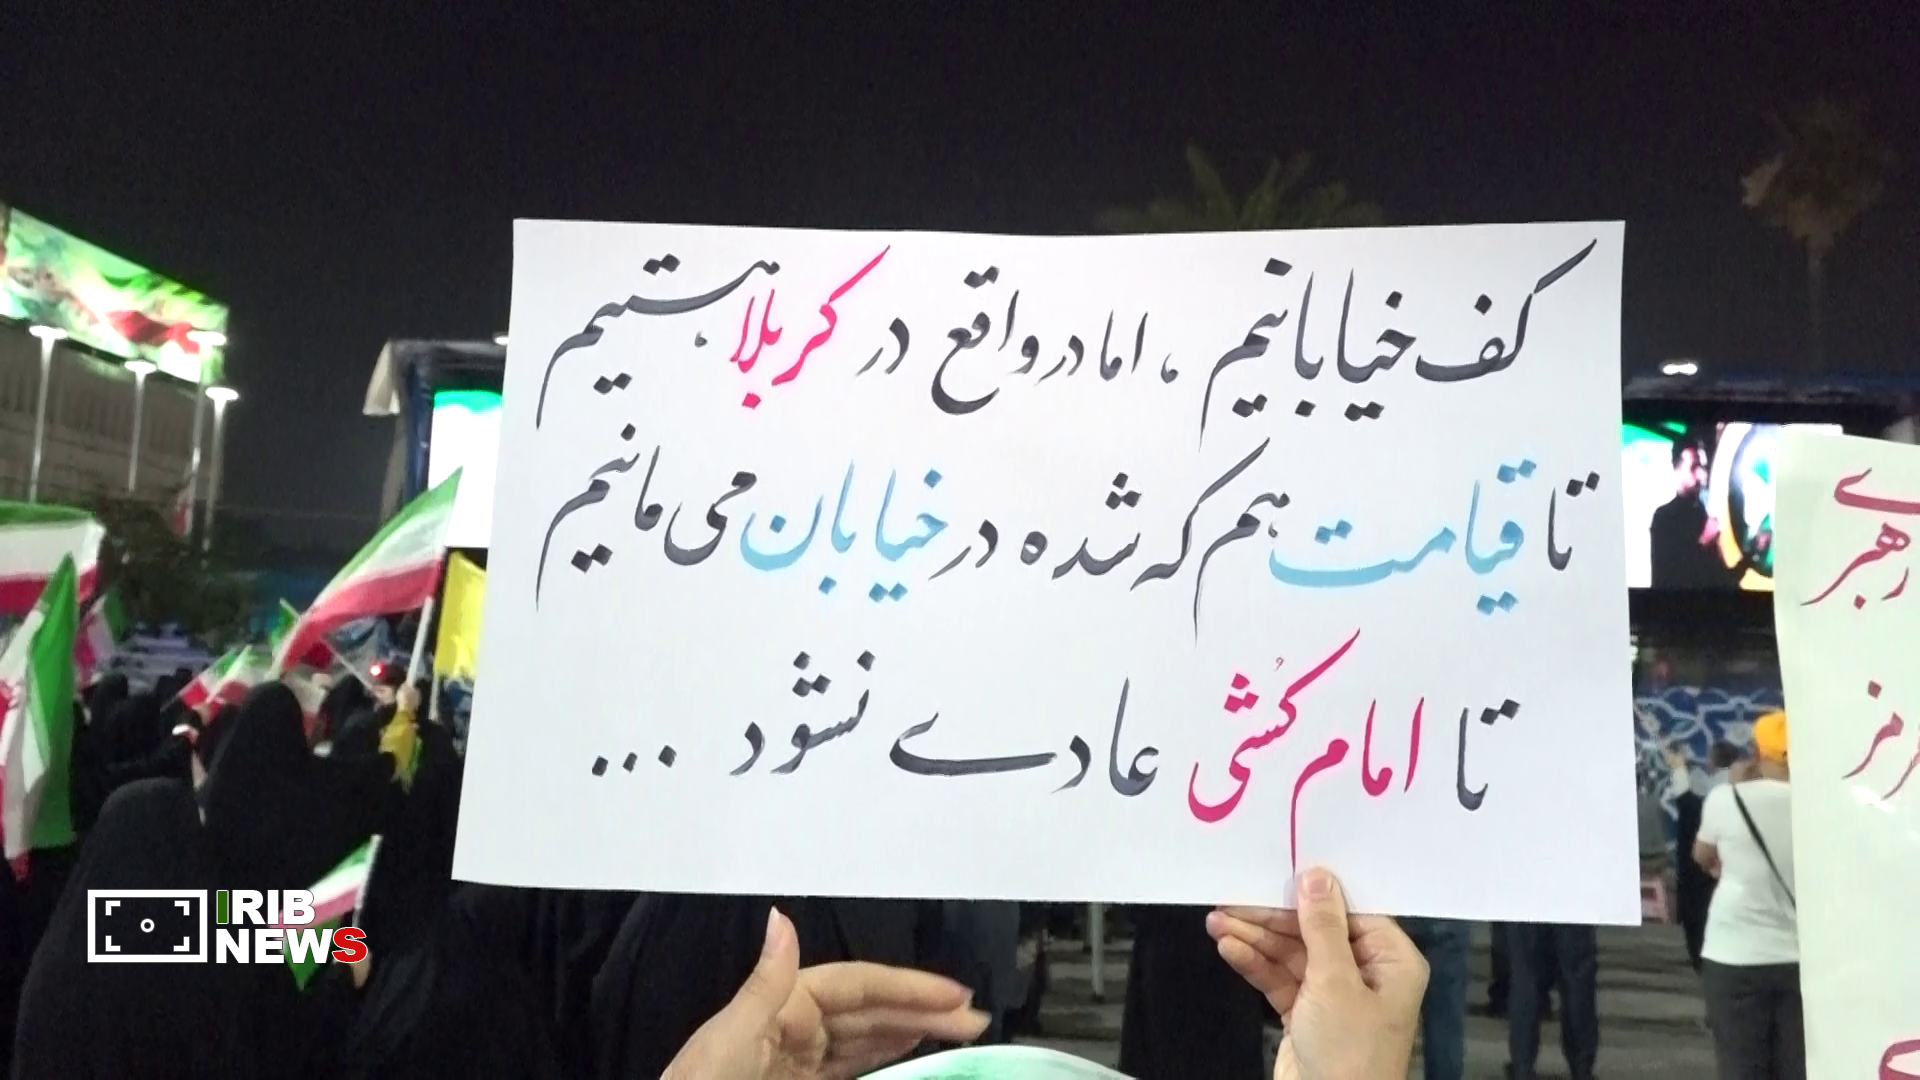 کف خیابانیم، اما در واقع در کربلا هستیم
تا قیامت هم که شده در خیابان می مانیم
تا امام کُشی عادے نشود ...
رهبر
IRIB
NEWS